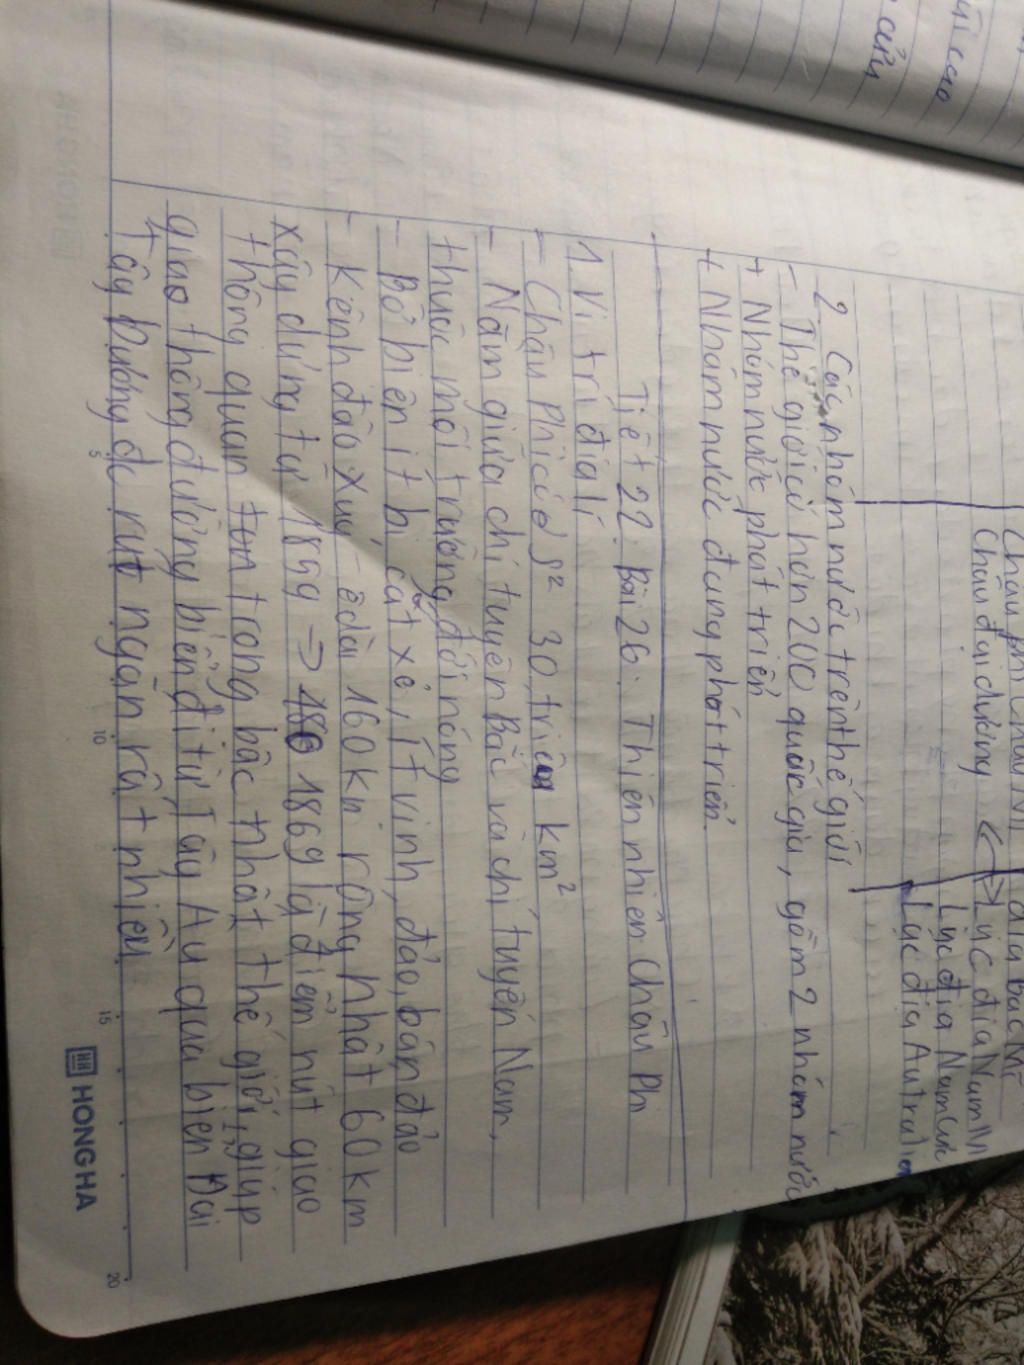 ài cao
cứu
Châu đại dương
địa Bắc Mĩ
Lục địa Nam
Lục địa Nam Cực
Lục địa Autralia
2 Các nhóm nước trên thế giới
- Thế giới có hơn 200 quốc gia, gồm 2 nhóm nước
+ Nhóm nước phát triển
+ Nhóm nước đang phát triển.
Tiết 22: Bài 26: Thiên nhiên Châu Phi
1. Vị trí địa lí
- Châu Phi có S² 30 triệu km²
- Nằm giữa chí tuyến Bắc và chí tuyến Nam,
thuộc môi trường đới nóng
- Bờ biển ít bị cắt xẻ, ít vịnh, đảo, bán đảo
- Kênh đào Xuy-ê dài 160km rộng nhất 60km
xây dựng từ 1859 => 1869 là điểm nút giao
thông quan trong bậc nhất thế giới, giúp
giao thông đường biển đi từ Tây Âu qua biển Đại
Tây Dương đc rút ngắn rất nhiều
5
10
15
20
HONG HA